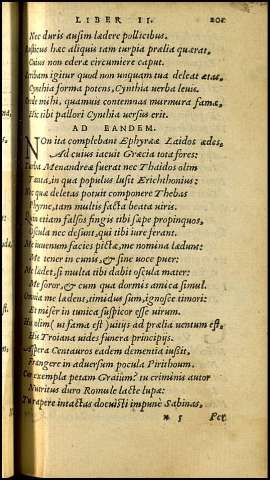 LIBER II. 201
Nec duris ausim lædere pollicibus.
Rusticus hæc aliquis tam turpia prælia quærat,
Cuius non ederæ circumiere caput.
Scribam igitur quod non unquam tua deleat ætas,
Cynthia forma potens, Cynthia verba leuis.
Crede mihi, quamuis contemnas murmura famæ,
Hic tibi pallori Cynthia versus erit.
AD EANDEM.
NOn ita complebant Ephyreæ Laidos ædes,
Ad cuius iacuit Græcia tota fores:
Turba Menandreæ fuerat nec Thaidos olim
Tanta, in qua populus lusit Erichthonius:
Nec quæ deletas potuit componere Thebas
Phyrne, tam multis facta beata uiris.
Quin etiam falsos fingis tibi sæpe propinquos,
Oscula nec desunt, qui tibi iure ferant.
Me iuuenum facies pictæ, me nomina lædunt:
Me tener in cunis, & sine uoce puer:
Me lædet, si multa tibi dabit oscula mater:
Me soror, & cum qua dormis amica simul.
Omnia me lædent, timidus sum, ignosce timori:
Et miser in tunica suspicor esse uirum.
His olim (ut fama est) uitijs ad prælia uentum est,
His Troiana uides funera principijs.
Aspera Centauros eadem dementia iußit,
Frangere in aduersum pocula Pirithoum.
Cur exempla petam Graiûm? tu criminis autor
Nutritus duro Romule lacte lupæ:
Tu rapere intactas docuisti impune Sabinas,
n 5 Per